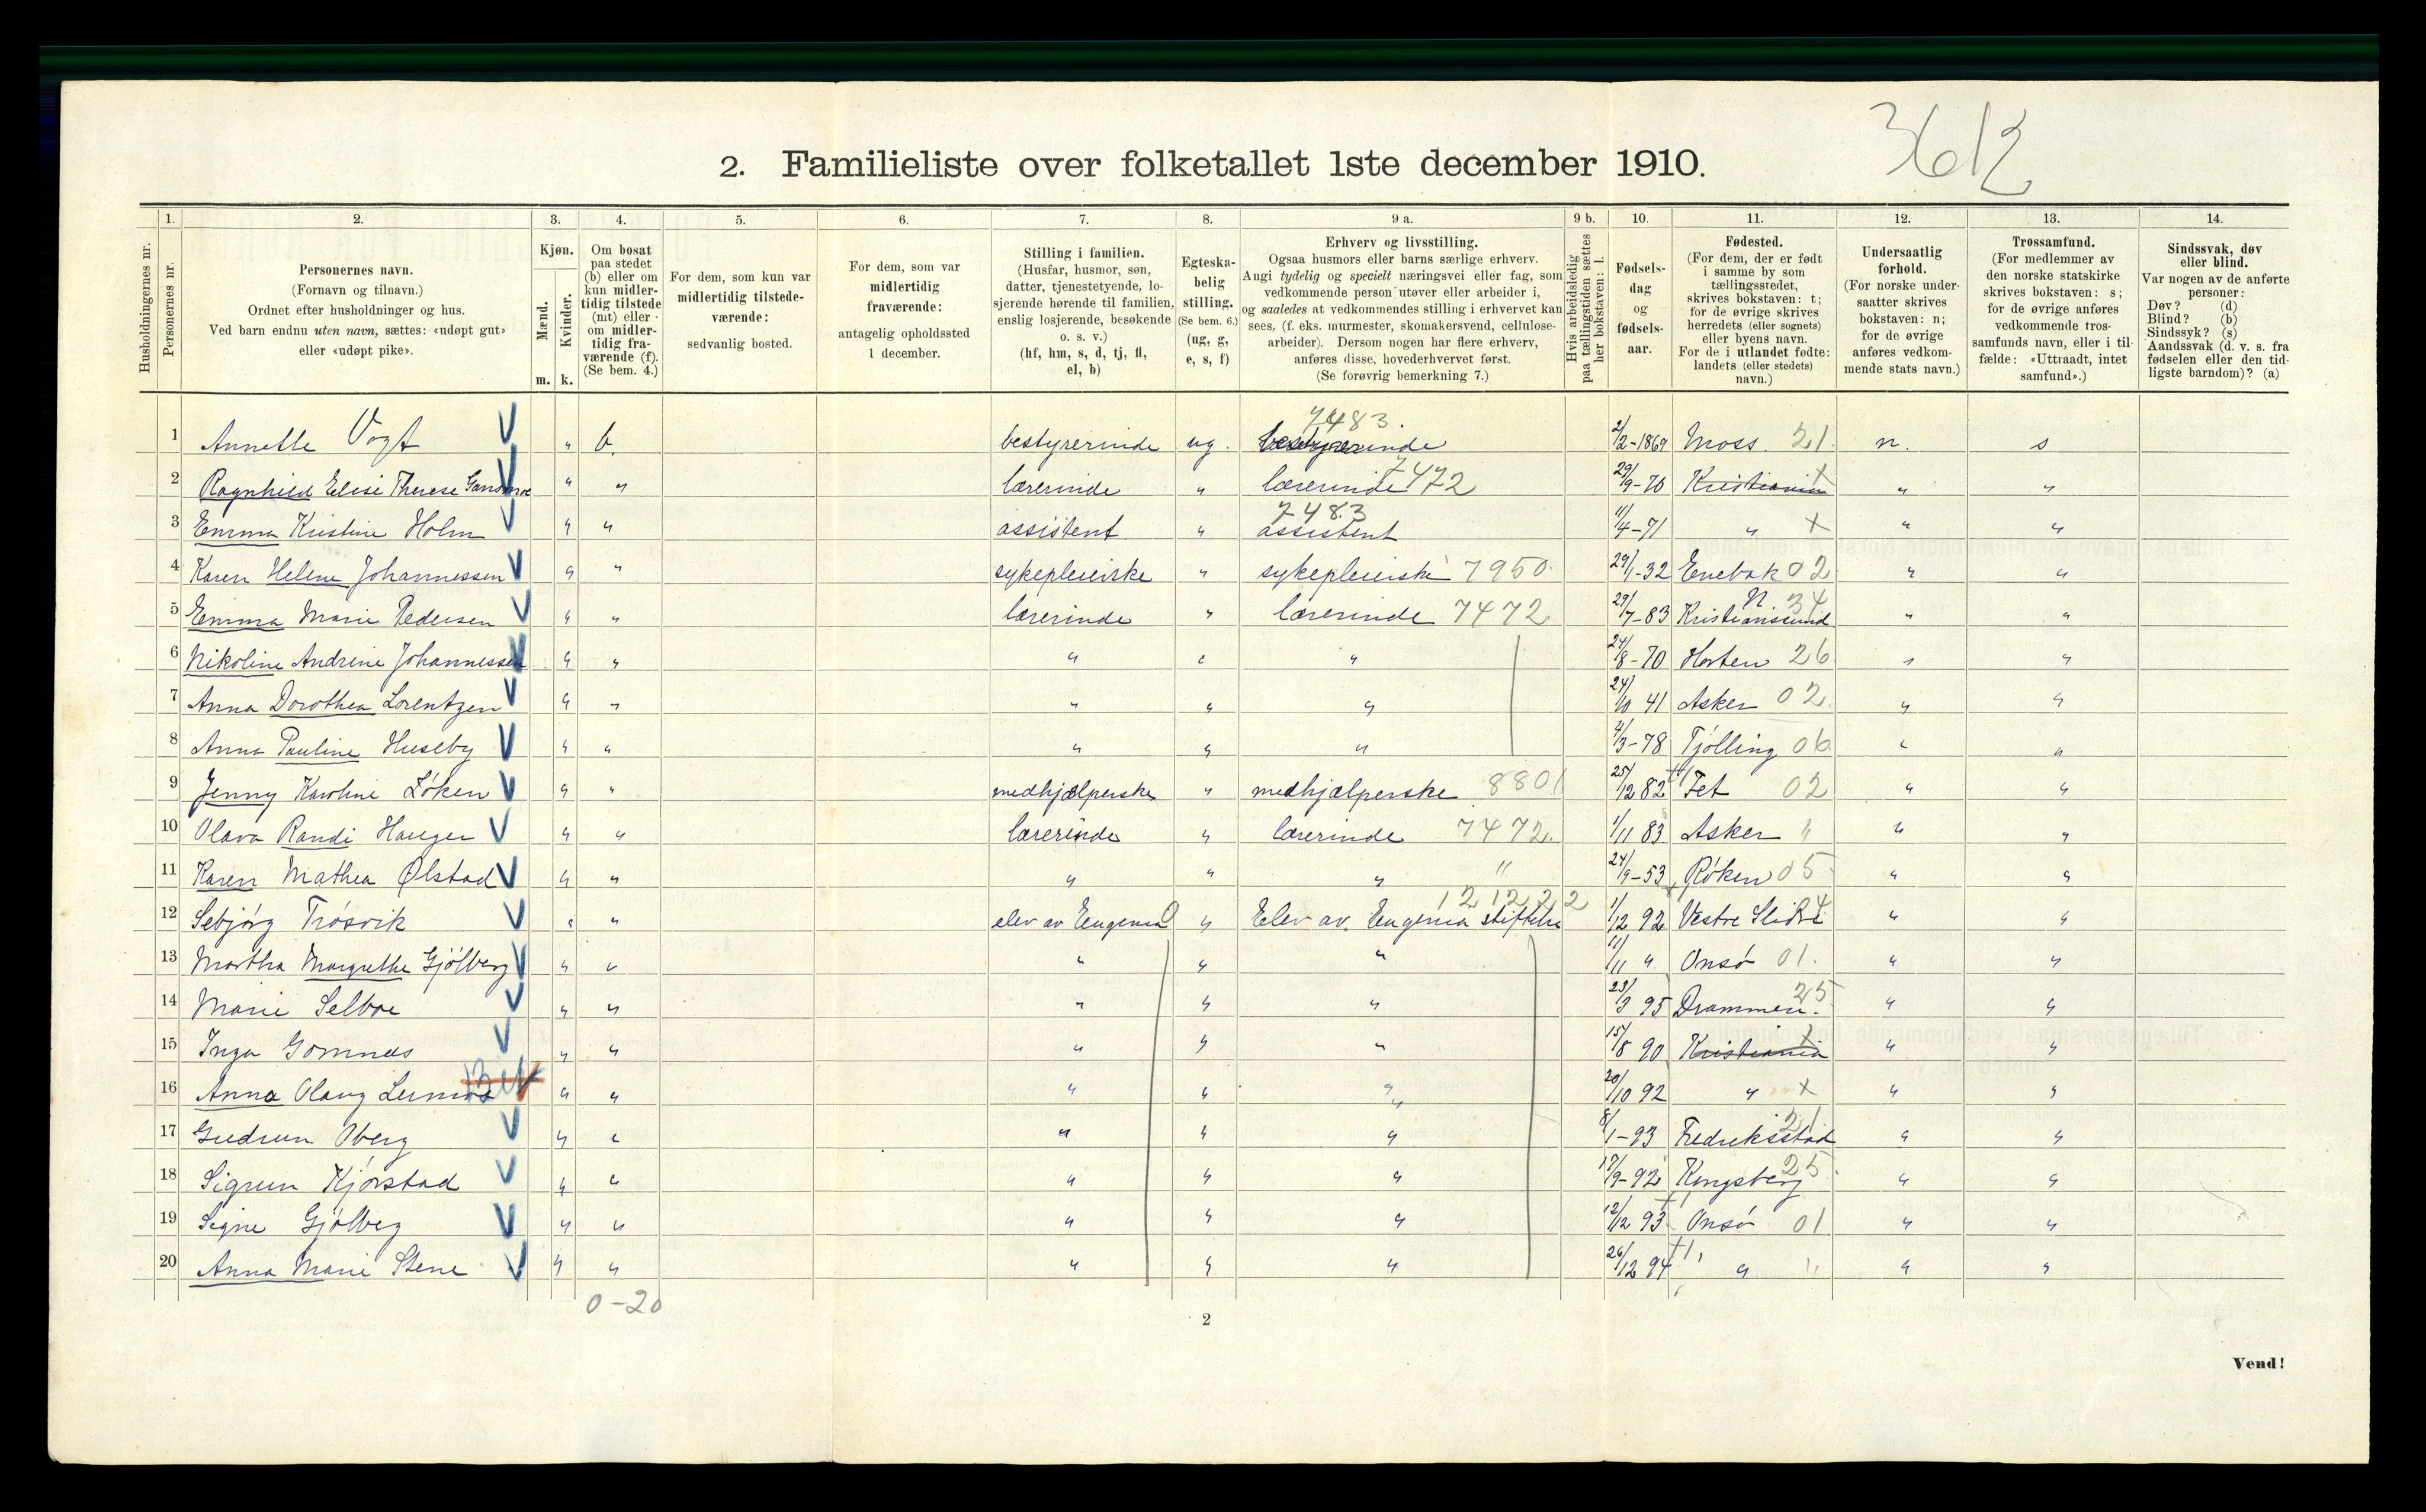 3612
2. Familieliste over folketallet 1ste december 1910.
Husholdningernes nr.
1. Personernes nr.
2. Personernes navn. (Fornavn og tilnavn.) Ordnet efter husholdninger og hus. Ved barn endnu uten navn, sættes: «udøpt gut» eller «udøpt pike».
3. Kjøn. Mænd. m. Kvinder. k.
4. Om bosat paa stedet (b) eller om kun midlertidig tilstede (mt) eller om midlertidig fraværende (f). (Se bem. 4.)
5. For dem, som kun var midlertidig tilstedeværende: sedvanlig bosted.
6. For dem, som var midlertidig fraværende: antagelig opholdssted 1 december.
7. Stilling i familien. (Husfar, husmor, søn, datter, tjenestetyende, losjerende hørende til familien, enslig losjerende, besøkende o. s. v.) (hf, hm, s, d, tj, fl, el, b)
8. Egteskabelig stilling. (Se bem. 6.) (ug, g, e, s, f)
9 a. Erhverv og livsstilling. Ogsaa husmors eller barns særlige erhverv. Angi tydelig og specielt næringsvei eller fag, som vedkommende person utøver eller arbeider i, og saaledes at vedkommendes stilling i erhvervet kan sees, (f. eks. murmester, skomakersvend, cellulosearbeider). Dersom nogen har flere erhverv, anføres disse, hovederhvervet først. (Se forøvrig bemerkning 7.)
9 b. Hvis arbeidsledig paa tællingstiden sættes her bokstaven: l.
10. Fødselsdag og fødselsaar.
11. Fødested. (For dem, der er født i samme by som tællingsstedet, skrives bokstaven: t; for de øvrige skrives herredets (eller sognets) eller byens navn. For de i utlandet fødte: landets (eller stedets) navn.)
12. Undersaatlig forhold. (For norske undersaatter skrives bokstaven: n; for de øvrige anføres vedkommende stats navn.)
13. Trossamfund. (For medlemmer av den norske statskirke skrives bokstaven: s; for de øvrige anføres vedkommende trossamfunds navn, eller i tilfælde: «Uttraadt, intet samfund».)
14. Sindssvak, døv eller blind. Var nogen av de anførte personer: Døv? (d) Blind? (b) Sindssyk? (s) Aandssvak (d. v. s. fra fødselen eller den tidligste barndom)? (a)
1 Annette Vogt V " b. bestyrerinde ug. 7483. bestyrerinde 2/2-1869 Moss 21 n. s
2 Ragnhild Elise Therese V " " lærerinde " lærerinde 7472 29/9-76 Kristiania X " "
3 Emma Kristine Holm V " " assistent " 7483 assistent 11/4-71 " X " "
4 Karen Helene Johannessen V " " sykepleierske " sykepleierske 7950 29/1-32 Enebak 02 " "
5 Emma Marie Pedersen V " " lærerinde " lærerinde 7472 29/7-83 Kristianssund N 34 " "
6 Nikoline Andrine Johannessen V " " " " " 24/8-70 Horten 26 " "
7 Anna Dorothea Lorentzen V " " " " " 24/10 41 Asker 02 " "
8 Anna Pauline Huseby V " " " " " 4/3-78 Tjølling 06 " "
9 Jenny Karoline Løken V " " medhjælperske " medhjælperske 8801 25/12 82 Fet 02 " "
10 Olava Randi Haugen V " " lærerinde " lærerinde 7472 1/11 83 Asker " " "
11 Karen Mathea Ølstad V " " " " " " 24/9-53 Røken 05 " "
12 Sebjørg Trøsvik V " " elev av Eugenia " Elev av Eugenia stiftelse 1/12 92 Vestre Slidre " "
13 Martha Margrethe Gjølberg V " " " " " 11/11 " Onsø 01. " "
14 Marie Selboe V " " " " " 23/3 95 Drammen. 25 " "
15 Inga Gomnæs V " " " " " 15/8 90 Kristiania X " "
16 Anna Olaug " " " " " 20/10 92 " X " "
17 Gudrun Øberg V " " " " " 8/1-93 Fredriksstad 21 " "
18 Sigrun Kjørstad V " " " " " 17/9-92 Kongsberg 25 " "
19 Signe Gjølberg V " " " " " 12/12 93 Onsø 01 " "
20 Anna Marie Stene V " " " " " 26/12 94 " " " "
0-20
2
Vend!